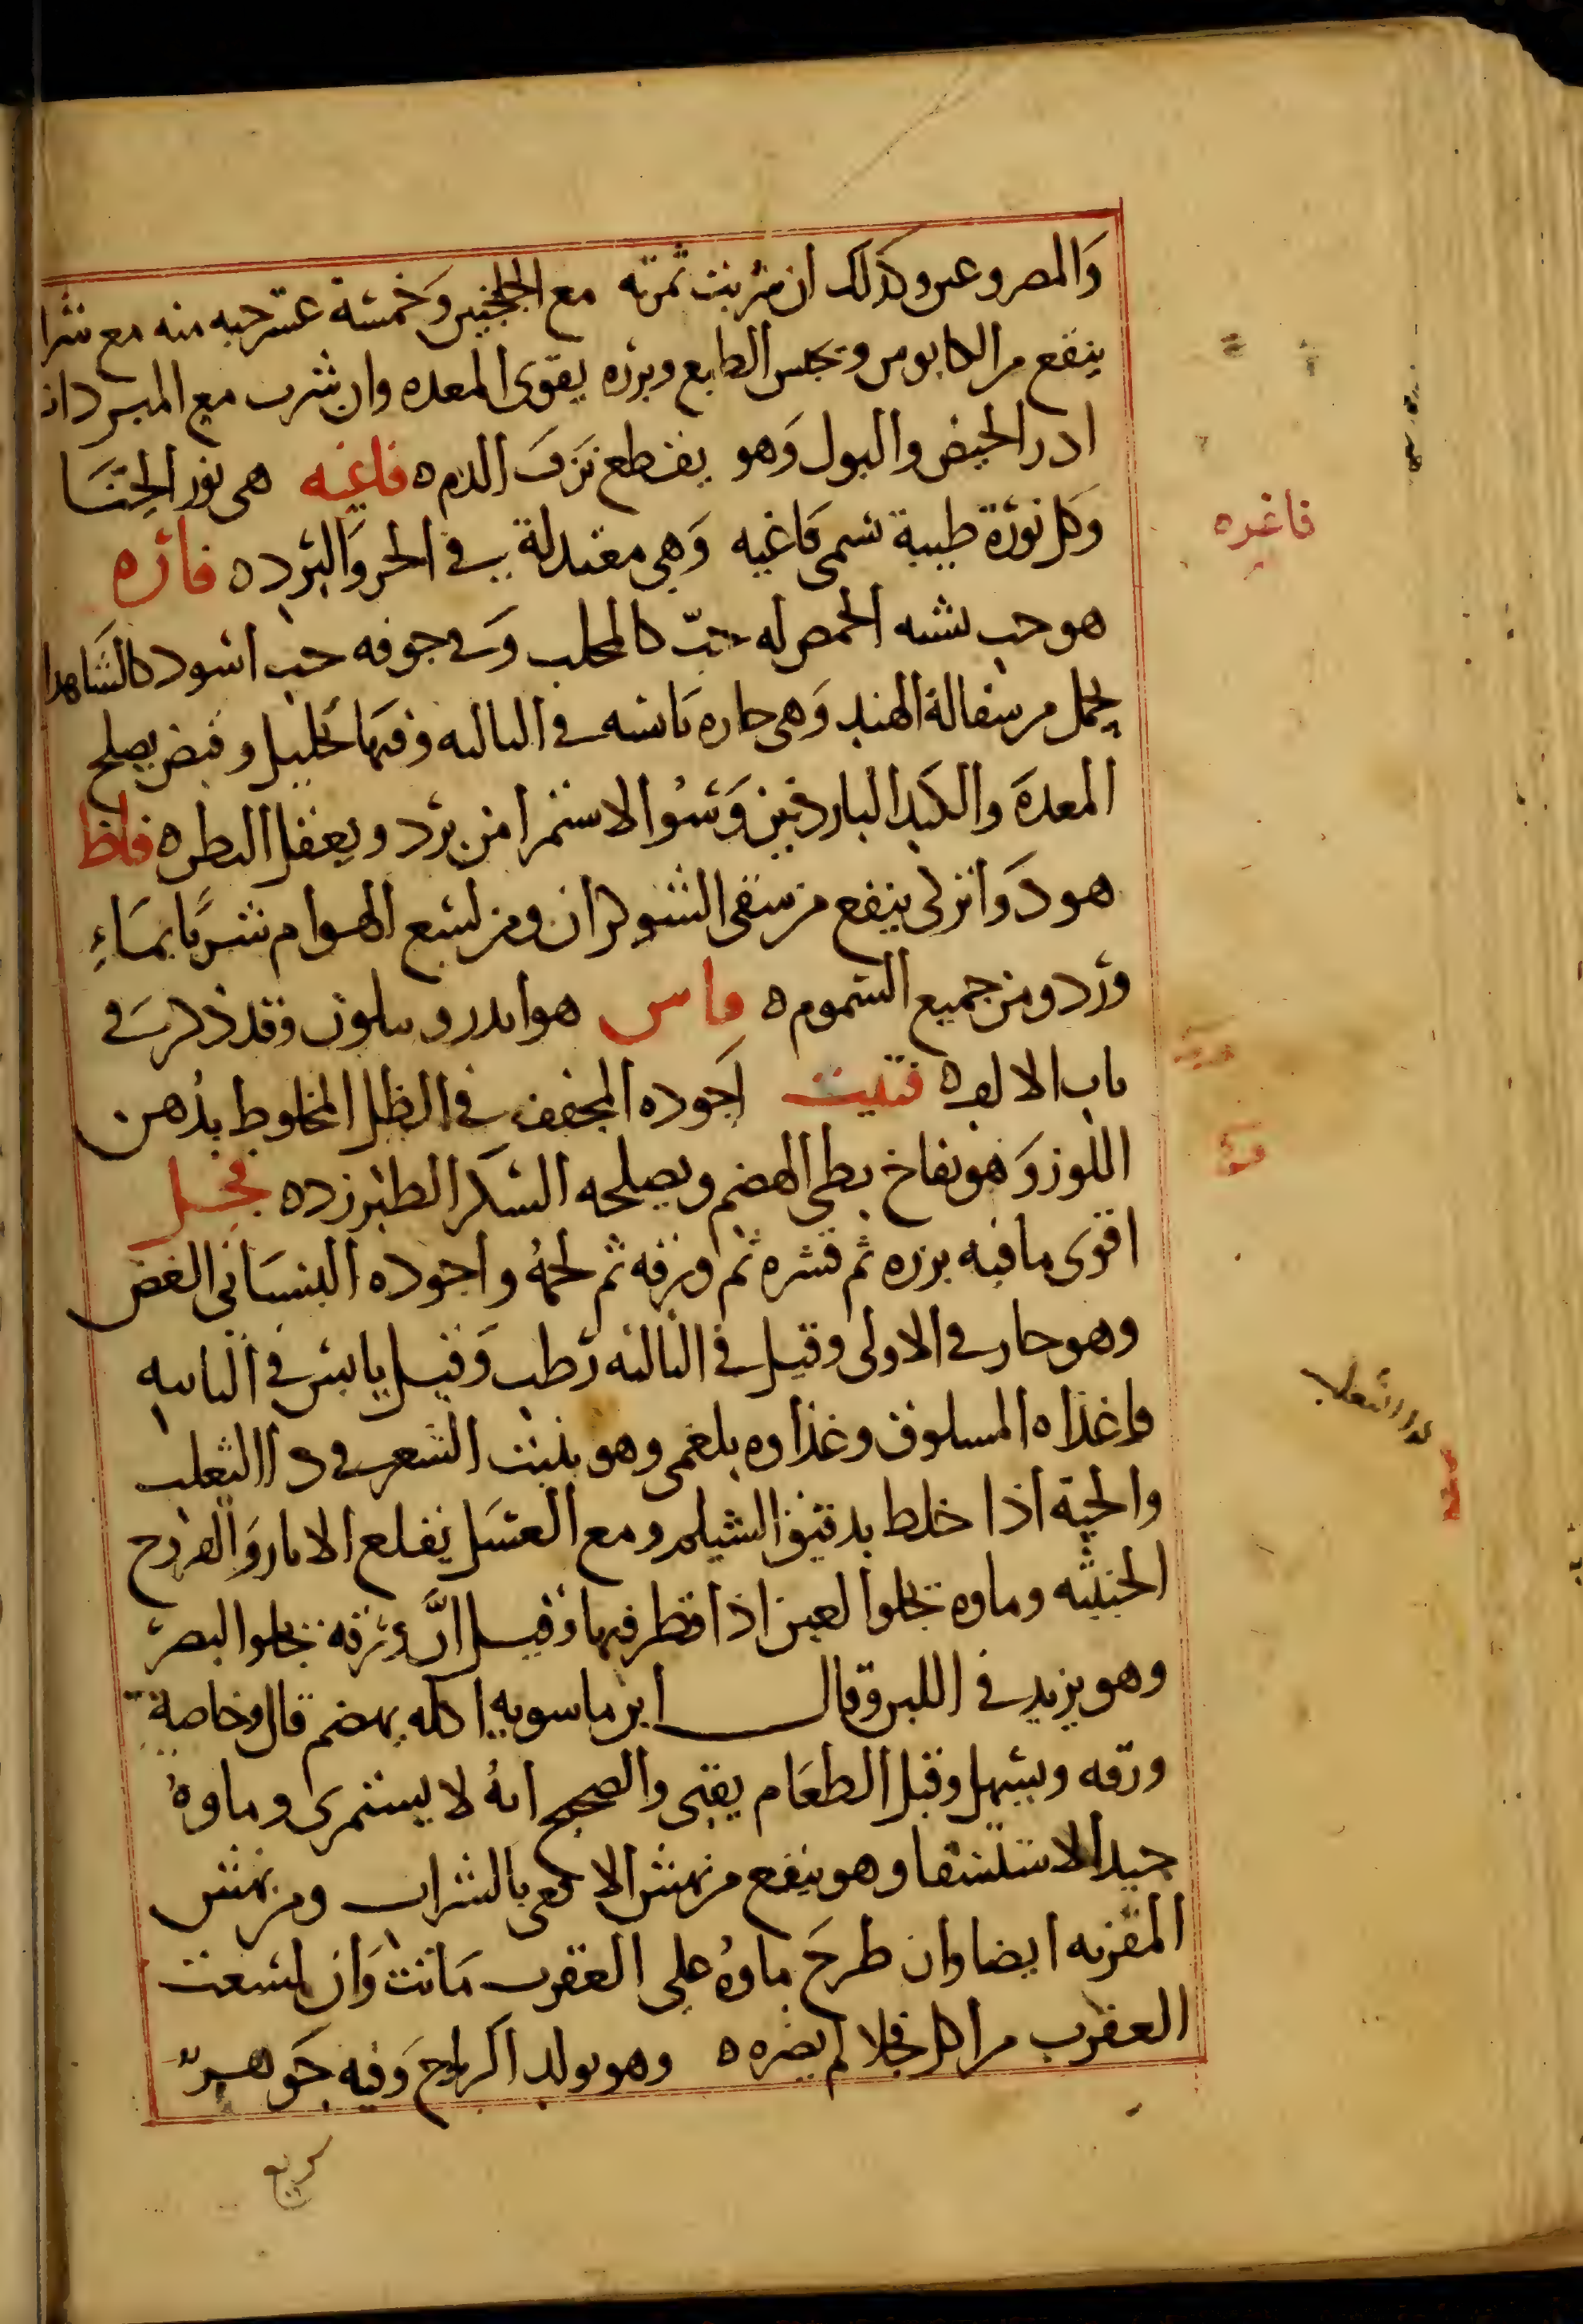 والمصروعين وكذلك ان شربت ثمرته مع الجلنجبين وخمسة عشر حبه منه مع شرا
ينفع من الكابوس ويحبس الطابع وبزره يقوى المعده وان شرب مع المبردات
ادر الحيض والبول وهو يقطع نزف الدم ه فاغيه هى نور الحنا
وكل نورة طيبة تسمى فاغيه وهي معتدلة في الحر والبرد ه فاغره
هو حب يشبه الحمص له حبّ كالمحلب وفي جوفه حب اسود كالشاهدا
يحمل من سفالة الهند وهى حاره يابسه في الثالثه وفيها تحليل وقبض يصلح
المعدة والكبد الباردتين وسوٴ الاستمرا من برد ويعقل البطن ه فاظ
هو دوا تركى ينفع من سقى الشوكران ومن لسع الهوام شربًا بماءِ
ورد ومن جميع السموم ه فاس هو وقد ذكر في
باب الالف ه فتيت اجوده المجفف في الظل المخلوط بدُهن
اللوز وهو نفاخ بطى الهضم ويصلحه السكر الطبرزد ه فجل
اقوى ما فيه بزره ثم قشره ثم ورقه ثم لحمهُ واجوده البستانى الغض
وهو حار في الاولى وقيل في الثالثه رطب وقيل يابس في الثانيه
واغذاه المسلوق وغذاوه بلغمى وهو ينبت الشعر في دا الثعلب
والحية اذا خلط بدقيق الشيلم ومع العسل يقلع الاثار والقروح
الخبيثه وماوه يجلوا لعين اذا قطر فيها وقيل انَّ ورقه يجلوا البصر
وهو يزيد في اللبن وقال ابن ماسويه اكله يهضم قال وخاصة
ورقه ويسهل وقبل الطعام يقى والصحيح انهُ لا يستمرى وماوهُ
جيد الاستسقا وهو ينفع من نهش الافعى بالشراب ومن نهش
المقرنه ايضا وان طرح ماوهُ على العقرب ماتت وان لسعت
العقرب من اكل فجلا لم يضره ه وهو يولد الرياح وفيه جوهرٌ
فاغره
دوا الثعلب
سريع